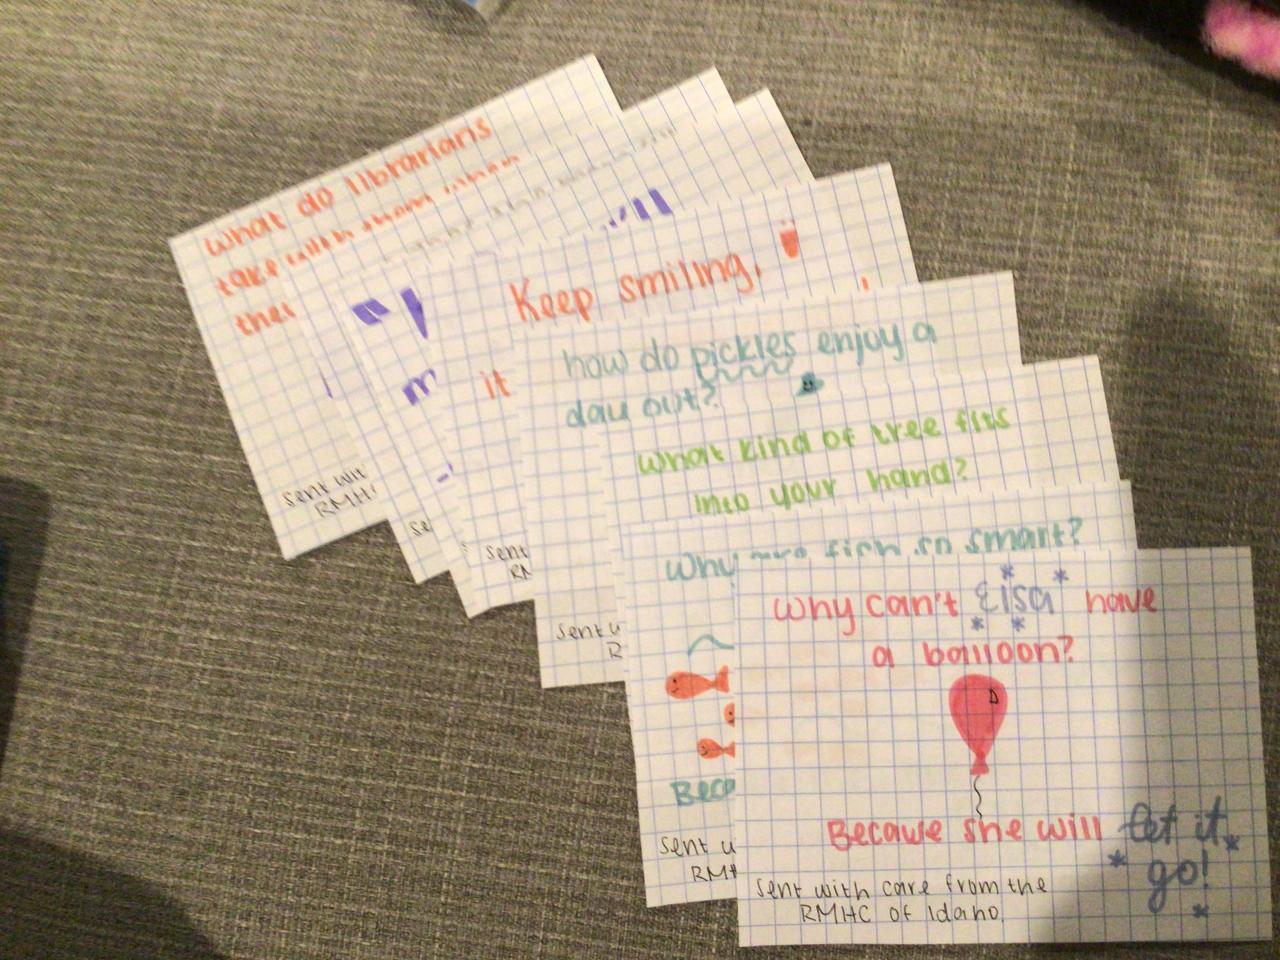 What do librarians
take with them when
sent wit
RMH
Keep smiling,
it
sent
how do pickles enjoy a
day out?
sent
What kind of tree fits
into your hand?
Why are fish so smart?
Beca
sent w
RMH
Why can't Elsa have
a balloon?
Because she will let it
go!
sent with care from the
RMHC of Idaho